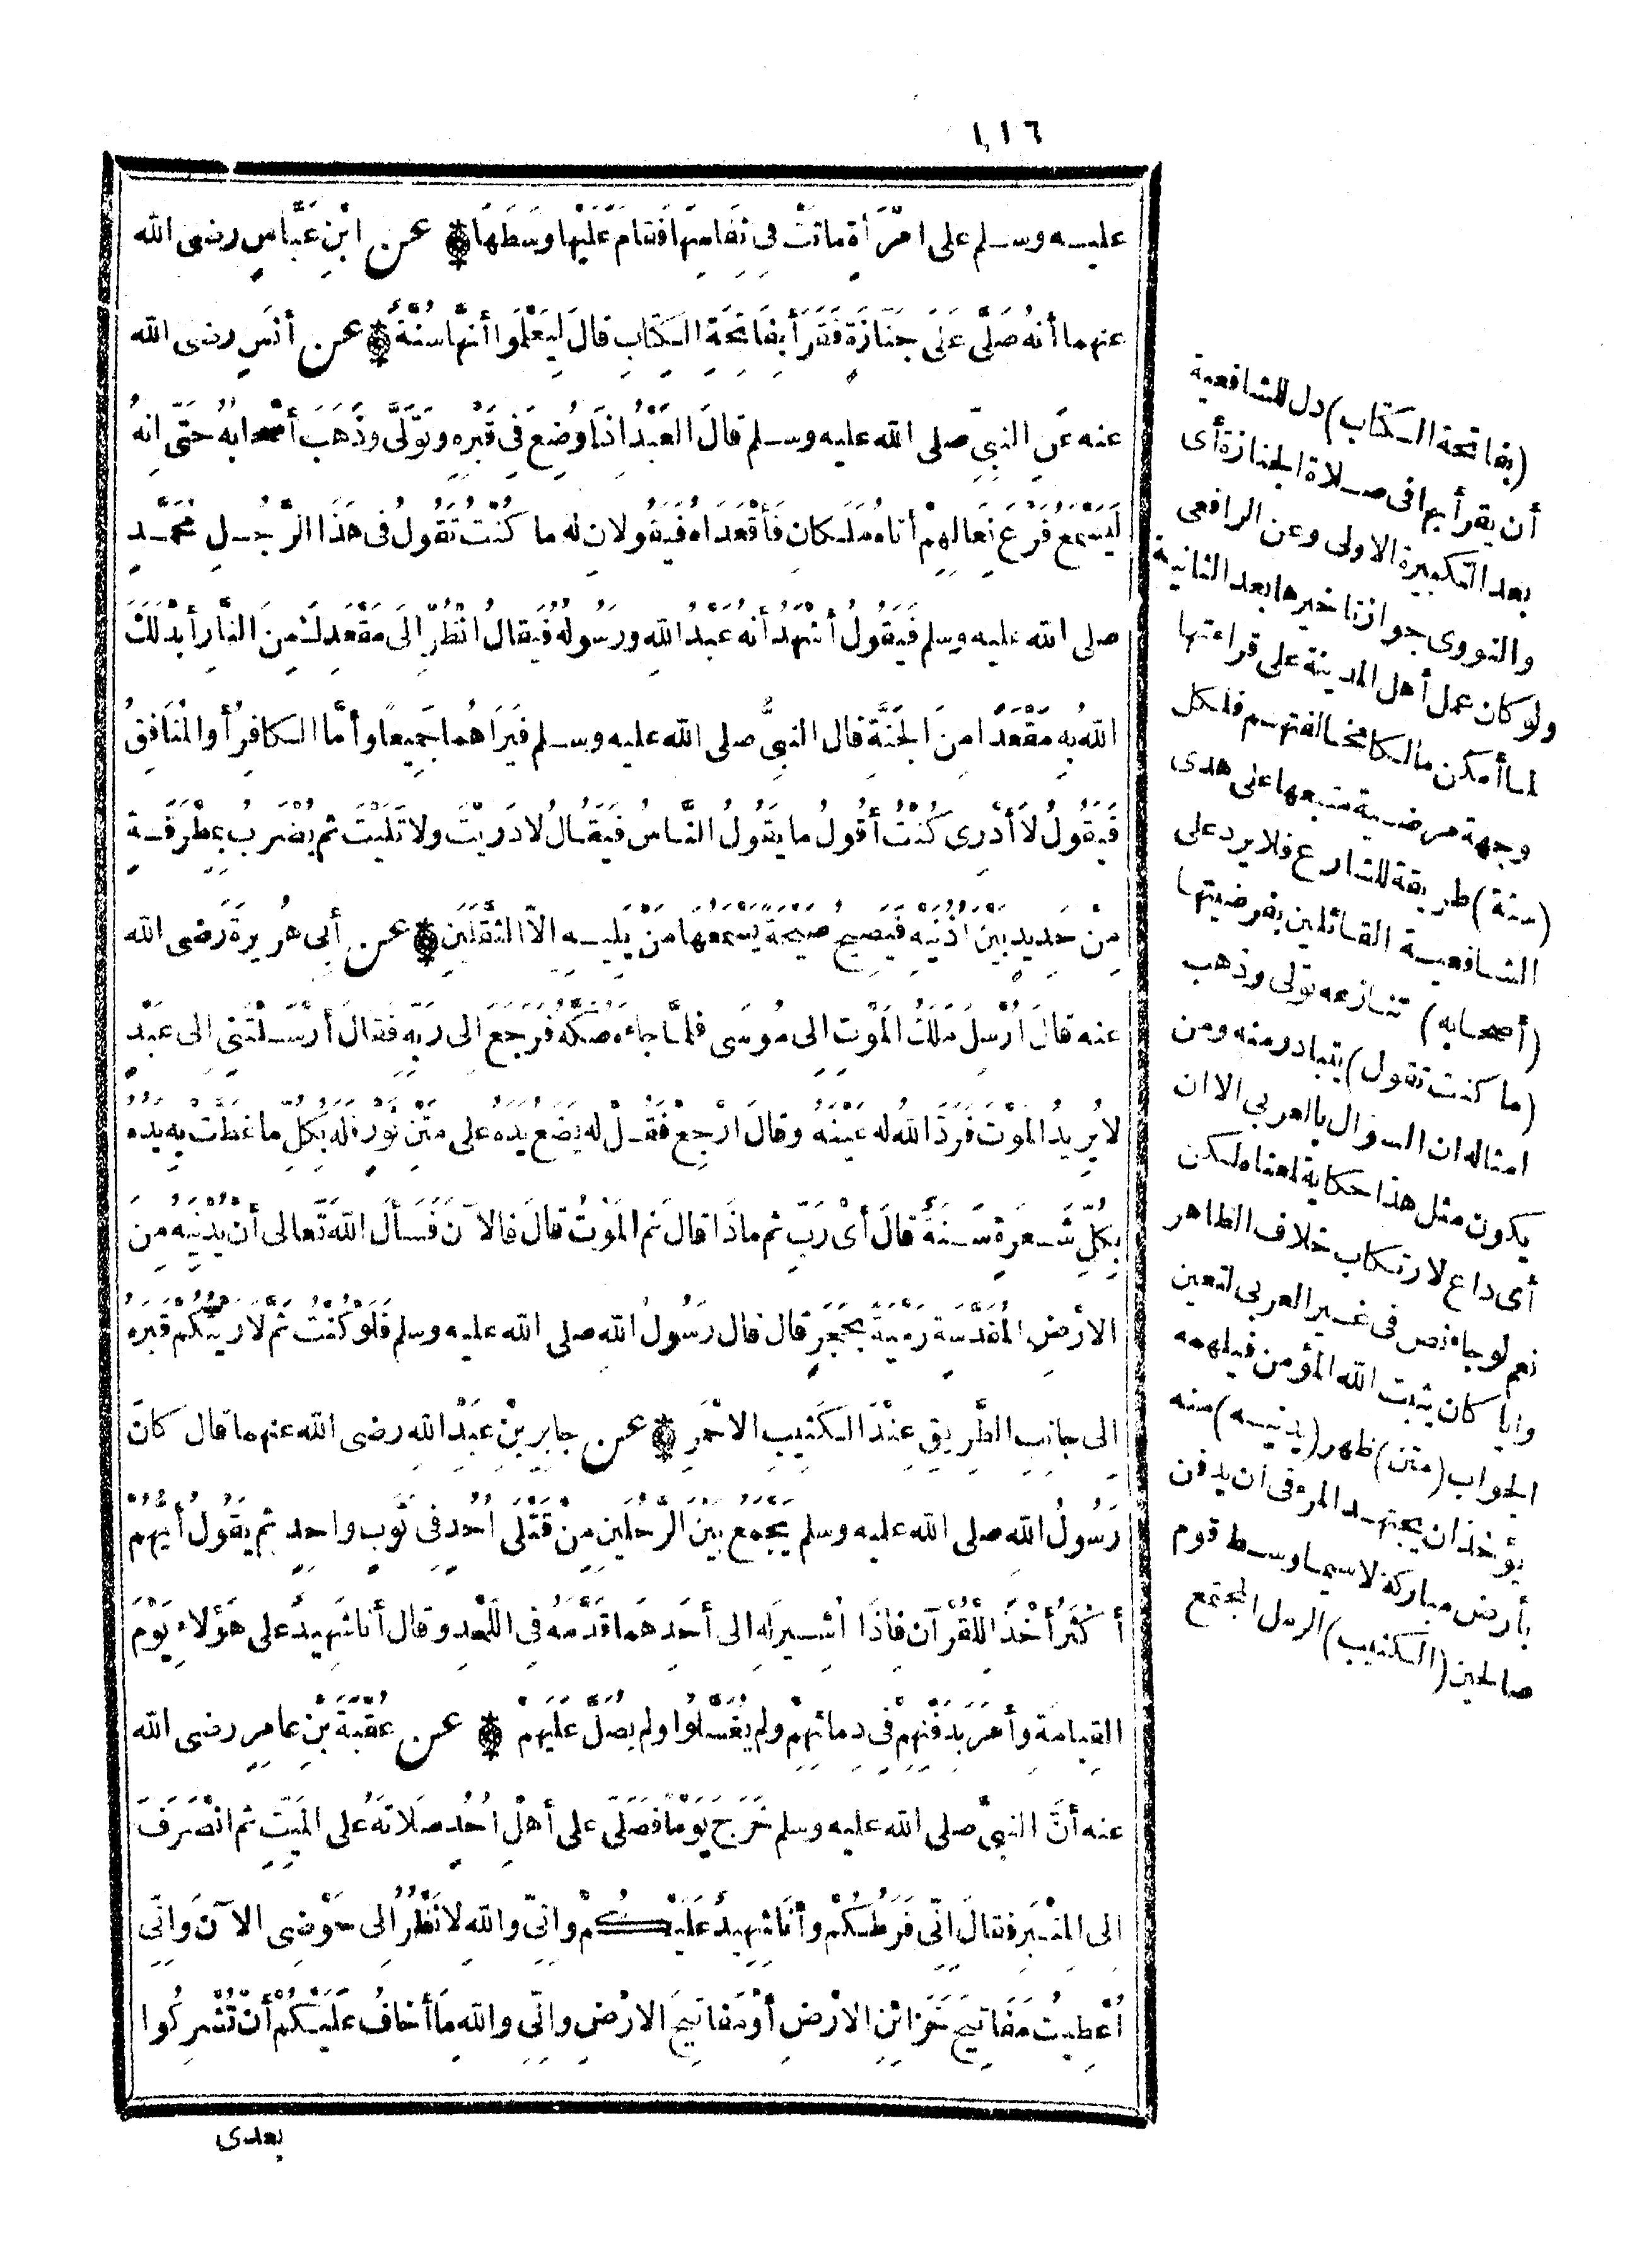 ١١٦
عليه وسلم على امْرَأَةٍ ماتَتْ فى نِفَاسِهَا فَقامَ عَلَيْها وَسَطَهَا عن ابْنِ عَبَّاسٍ رضى الله
عنهما أنهُ صَلَّى عَلَى جَنَازَةٍ فَقَرَأَ بِفَاتِحَةِ الكِتَابِ قالَ لِيَعْلَمُوا أنَّها سُنَّةٌ عن أنَسٍ رضى الله
عنه عَنِ النبِىِّ صلى الله عليه وسلم قالَ العَبْدُ اذَا وُضِعَ فى قَبْرِهِ وتَوَلَّى وذَهَبَ أصْحابُهُ حَتَّى انهُ
لَيَسْمَعُ قَرْعَ نِعَالِهِمْ أتاهُ مَلَكانِ فَأَقْعَدَاهُ فَيَقُولانِ له ما كُنْتَ تَقُولُ فى هَذَا الرَّجُلِ مُحَمَّدٍ
صلى الله عليه وسلم فَيَقُولُ أشْهَدُ أنهُ عَبْدُ اللهِ ورَسُولُهُ فَيُقالُ انْظُرْ الَى مَقْعَدِكَ مِنَ النَّارِ أبْدَلَكَ
اللهُ بِهِ مَقْعَدًا مِنَ الجَنَّةِ قال النبىُّ صلى الله عليه وسلم فَيَرَاهُما جَمِيعًا وأمَّا الكافِرُ أوِ المُنَافِقُ
فَيَقُولُ لاَ أَدْرِى كُنْتُ أقُولُ ما يَقُولُ النَّاسُ فَيُقالُ لا دَرَيْتَ ولا تَلَيْتَ ثم يُضْرَبُ بِمِطْرَقَةٍ
مِنْ حَدِيدٍ بَيْنَ اُذُنَيْهِ فَيَصِيحُ صَيْحَةً يَسْمَعُهَا مَنْ يَلِيهِ الاّ الثَّقَلَيْنِ عن أبِى هُرَيرةَ رَضى الله
عنه قالَ اُرْسِلَ مَلَكُ المَوْتِ الى مُوسَى فلمَّا جاءَهُ صَكَّهُ فَرَجَعَ الى رَبِّهِ فَقالَ أرْسَلْتَنِى الى عَبْدٍ
لا يُرِيدُ المَوْتَ فَرَدَّ اللهُ له عَيْنَهُ وقالَ ارْجِعْ فَقُلْ له يَضَعُ يَدَهُ على مَتْنِ ثَوْرٍ فله بِكلِّ ما غَطَّتْ بِهِ يَدُهُ
بِكُلِّ شَعرَةٍ سَنَةٌ قالَ أىْ رَبِّ ثم ماذَا قال ثم المَوْتُ قالَ فالآنَ فَسَألَ اللهَ تَعالى أنْ يُدْنِيَهُ مِنَ
الارْضِ المُقَدَّسَةِ رَمْيَةً بحَجَرٍ قال قال رَسُولُ اللهِ صلى الله عليه وسلم فَلَوْ كُنْتُ ثَمَّ لَأرَيْتُكُم قَبْرَهُ
الى جانِبِ الطَّرِيقِ عِنْدَ الكَثِيبِ الاحْمَرِ عن جابِرِ بْنِ عَبْدِ اللهِ رضى الله عنهما قال كانَ
رَسُولُ اللهِ صلى الله عليه وسلم يَجْمَعُ بَيْنَ الرَّجُلَيْنِ مِنْ قَتْلَى اُحُدٍ فى ثَوْبٍ واحِدٍ ثم يَقُولُ أيُّهُمْ
أكْثَرُ أخْذًا لِلْقُرْآنِ فاِذَا اُشِيرَ له الى أحَدِهِمَا قَدَّمَهُ فى اللَّحْدِ وقال أنا شَهِيدٌ على هَؤلاءِ يَوْمَ
القِيامَةِ وأمَرَ بِدَفْنِهِمْ فى دِمائِهِمْ ولم يُغَسَّلُوا ولم يُصَلَّ عَلَيهِمْ عن عُقْبَةَ بْنِ عامِرٍ رضى الله
عنه أنَّ النبىَّ صلى الله عليه وسلم خَرَجَ يَوْمًا فَصَلَّى على أهْلِ اُحُدٍ صَلاتَهُ على المَيِّتِ ثم انْصَرَفَ
الى المِنْبَرِ فقالَ انِّى فَرَطُكُمْ وأنَا شَهِيدٌ عَلَيْكُمْ وانِّى واللهِ لَأنْظُرُ الى حَوْضِى الآنَ وانِّى
اُعْطِيتُ مَفَاتِيحَ خَزَائِنِ الارْضِ أوْ مَفاتِيحَ الارْضِ وانِّى واللهِ ما أخافُ عَلَيْكُمْ أنْ تُشْرِكُوا
بعدى
(بفاتحة الكتاب) دل للشافعية
أن يقرأ بها فى صلاة الجنازة أى
بعد التكبيرة الاولى وعن الرافعى
والنووى جواز تاخيرها بعد الثانية
ولو كان عمل أهل المدينة على قراءتها
لما أمكن مالكا مخالفتهم فلكل
وجهة مرضية متبعها على هدى
(سنة) طريقة للشارع فلا يرد على
الشافعية القائلين بفرضيتها
(أصحابه) تنازعه تولى وذهب
(ما كنت تقول) يتبادر منه ومن
امثاله ان السؤال بالعربى الا ان
يكون مثل هذا حكاية لمعناه لكن
أى داع لارتكاب خلاف الظاهر
نعم لو جاء نص فى غير العربى لتعين
وايا كان يثبت الله المؤمن فيلهمه
الجواب (متن) ظهر (يدنيه) منه
يؤخذ ان يجتهد المرء فى ان يدفن
بأرض مباركة لا سيما وسط قوم
صالحين (الكثيب) الرمل المجتمع